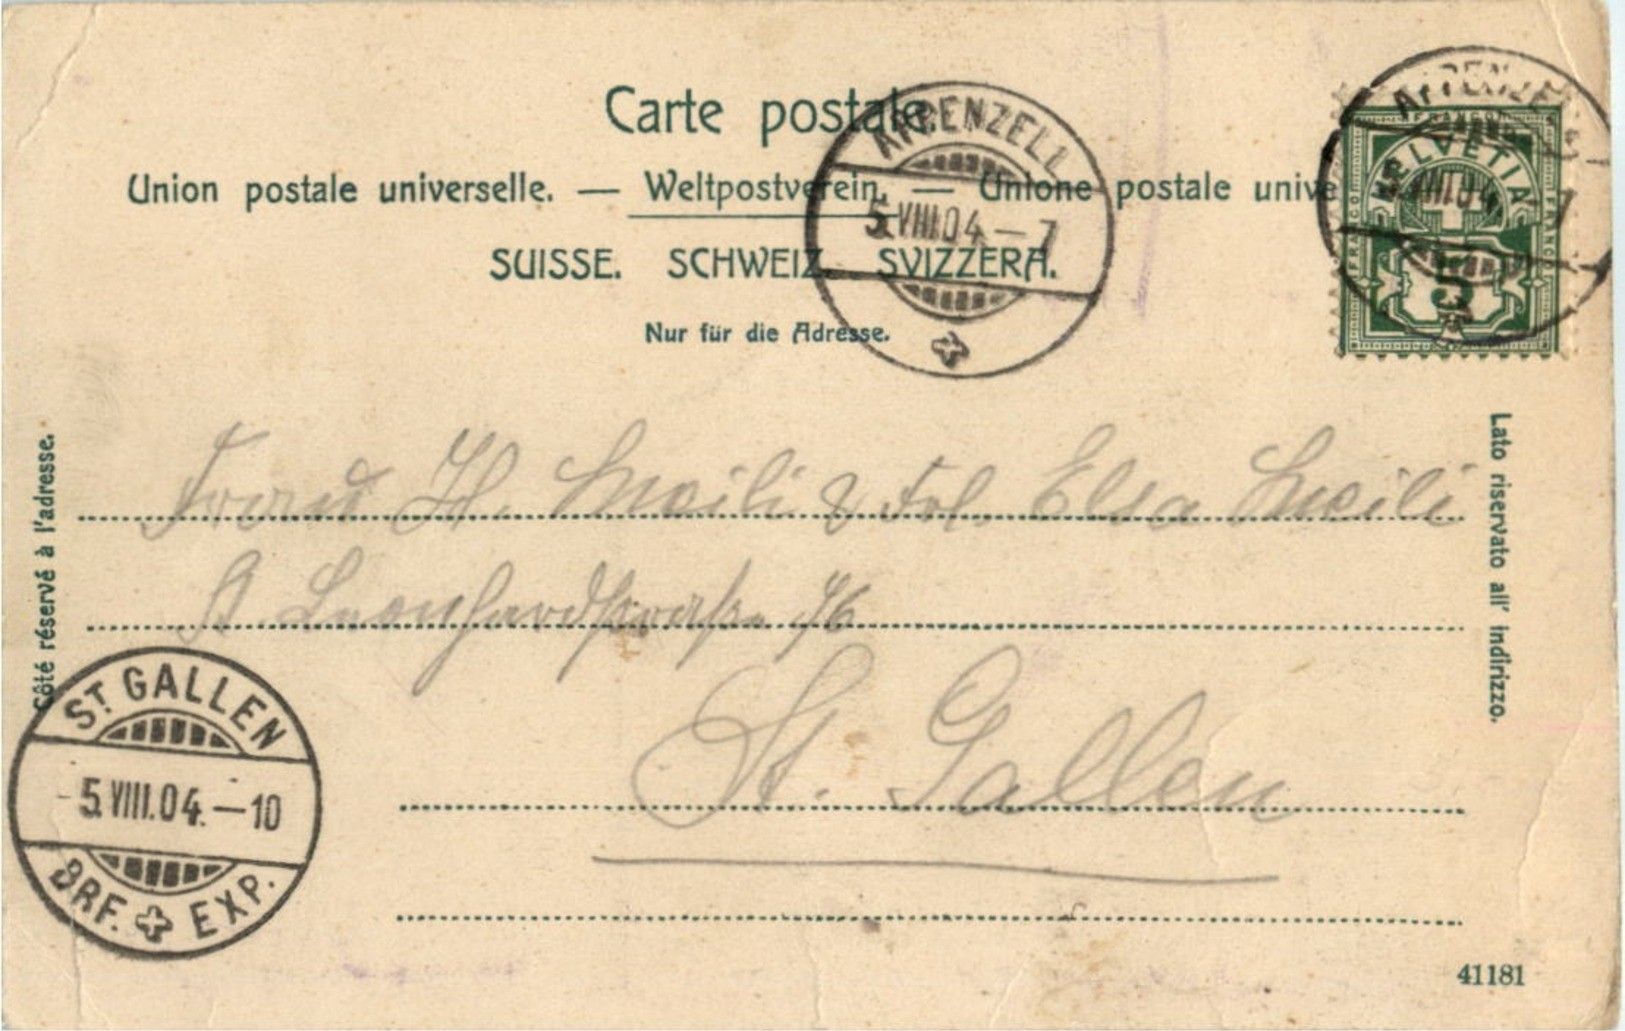 Carte postale.
Union postale universelle. — Weltpostverein. — Unione postale unive
SUISSE. SCHWEIZ. SVIZZERA.
Nur für die Adresse.
APPENZELL
5.VIII.04.—7
APPENZE
VIII.04.—7
HELVETIA
FRANCO
FRANCO
5
Côté réservé à l'adresse.
Lato riservato all' indirizzo.
Frau H. Meili & Frl. Elsa Meili
St. Leonhardstrasse
St. Gallen
ST. GALLEN
5.VIII.04.—10
BRF. EXP.
41181